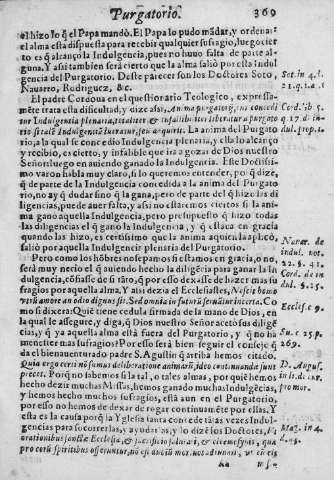 Purgatorio. 369
el hizo lo q̃ el Papa mandò. El Papa lo pudo mãdar, y ordenar:
el alma està dispuesta para recebir qualquier sufragio, luego cier
to es q̃ alcançó la Indulgencia, pues no huvo falta de parte al-
guna. Y assi tambien serà cierto que la alma saliò por esta indul
gencia del Purgatorio. Deste parecer son los Doctores Soto,
Navarro, Rodriguez, &c.
El padre Cordoua en el questionario Teologico, expressa-
mẽte trata esta dificultad, y dize assi, Anima purgatorij, cui concedi
tur Indulgentia plenaria, realiter, & infallibiliter liberatur à purgato
rio si talẽ Indulgentiã lucratur, seu acquirit. La anima del Purgato
rio, a la qual se concedio Indulgencia plenaria, y ella lo alcançò
y recibio, es cierto, y infalible que ira a gozar de Dios nuestro
Señor luego en auiendo ganado la Indulgencia. Este Doctissi-
mo varon habla muy claro, si lo queremos entender, por q̃ dize,
q̃ de parte de la Indulgencia concedida a la anima del Purgato
rio, no ay q̃ dudar sino q̃ la gana, pero de parte del q̃ hizo las di
ligencias, puede auer falta, y assi no estarmos ciertos si la ani-
ma ganò aquella Indulgencia, pero presupuesto q̃ hizo todas
las diligencias el q̃ ganò la Indulgencia, y q̃ estava en gracia
quando las hizo, es certissimo que la anima a quien la aplicò,
saliò por aquella Indulgencia plenaria del Purgatorio.
Pero como los hõbres no sepamos si estamos en gracia, o no,
serà muy necio el q̃ auiendo hecho la diligẽcia para ganar la In
dulgencia, cõfiasse de si tato, q̃ por esso dexasse de hazer mas su
fragios por aquella alma. Y assi dezia el Ecclesiastes, Nescit homo
virũ amore an odio dignus sit. Sed omnia in futurũ seruãtur incerta. Co
mo si dixera: Quiẽ tiene cedula firmada de la mano de Dios, en
la qual le assegure, y diga, q̃ Dios nuestro Señor acetò sus diligẽ
cias, y q̃ ya aquella alma està fuera del Purgatorio, y q̃ no ha
menester mas sufragios? Por esso serà bien seguir el consejo q̃
da el bienauenturado padre S. Agustin q̃ arriba hemos citado.
Quia ergo certi nõ sumus de liberatione animarũ, ideo continuande sunt
preces. Porq̃ no sabemos si la tal, o tales almas, por quiẽ hemos
hecho dezir muchas Missas, hemos ganado muchas Indulgẽcias,
y hemos hecho muchos sufragios, està aun en el Purgatorio,
por esso no hemos de dexar de rogar continuamẽte por ellas. Y
esta es la causa porq̃ la Yglesia santa concede tãtas vezes Indul-
gencias para socorrerlas, y ayudarlas, y lo dizen los Doctores,
orationibus sanctæ Ecclesiæ, & sacrificio salutari, & eleemosynis, quæ
pro eorũ spiritibus offeruntur, nõ est dubiũ mortuos adiuuari, vt cũ eis
Aa
Sot. in 4. d.
21. q. 1. a. 1
Cord. lib 5.
q 17. d in-
dul. q. 19.
Navar. de
indul. not.
22. §. 21.
Cord. de in
dul. q. 15.
Eccles. c 9.
269.
D. Augus.
pro mor.
Mag. in 4.